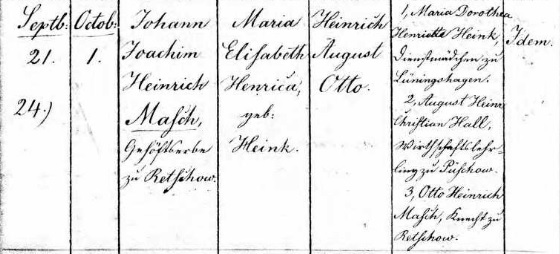 Septb:
21.
24.)
Octob:
1.
Johann
Joachim
Heinrich
Masch,
Gehöftserbe
zu Retschow.
Maria
Elisabeth
Henrica,
geb:
Heink.
Heinrich
August
Otto.
1, Maria Dorothea
Henriette Heink,
Dienstmädchen zu
Lüningshagen.
2, August Heinr
Christian Hall,
Wirthschaftslehr-
ling zu Püschow.
3, Otto Heinrich
Masch, Knecht zu
Retschow.
Idem.